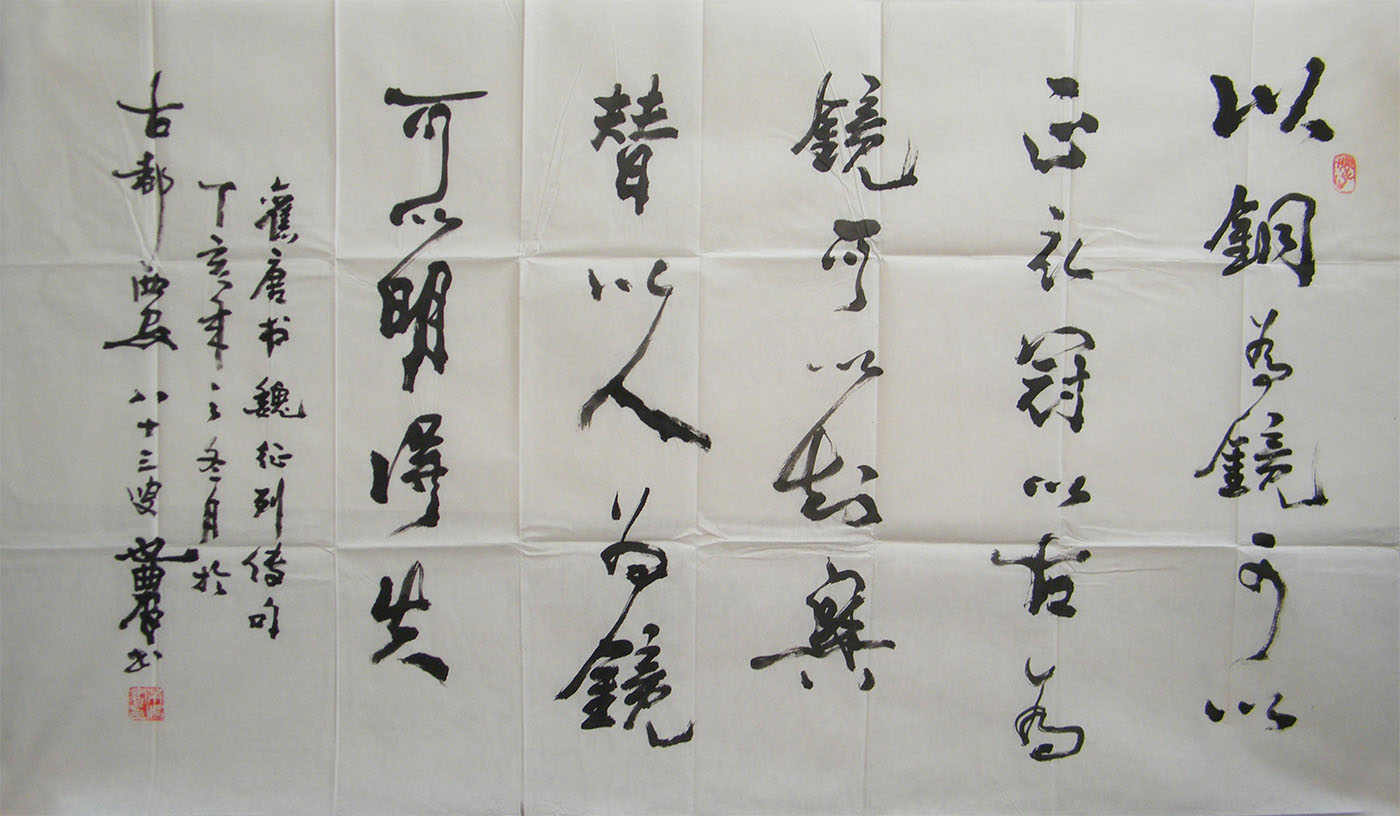 以銅為鏡可以
正衣冠以古為
鏡可以知興
替以人为鏡
可以明得失
舊唐书魏征列傳句
丁亥年之冬月於
古都西安八十三叟世農书